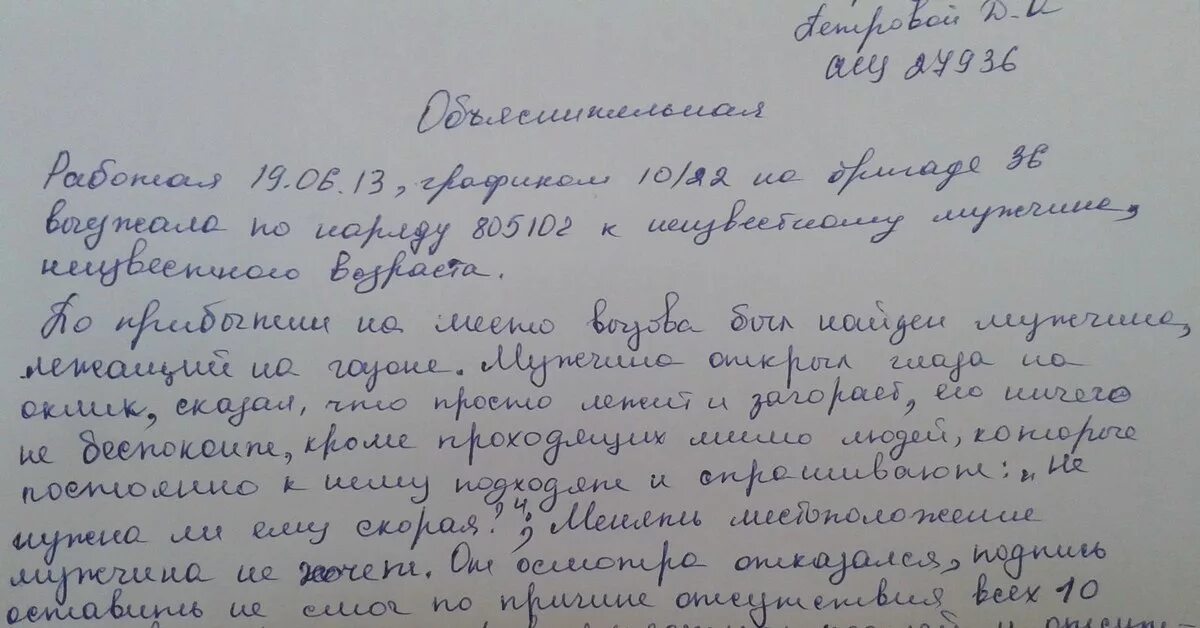 Петровой Д. И
27936
Объяснительная
Работая 19.06.13, графиком 10/22 на бригаде 36
выезжала по наряду 805102 к неизвестному мужчине,
неизвестного возраста.
По прибытии на место вызова был найден мужчина,
лежащий на газоне. Мужчина открыл глаза на
оклик, сказал, что просто лежит и загорает, его ничего
не беспокоит, кроме проходящих мимо людей, которые
постоянно к нему подходят и спрашивают: „Не
нужна ли ему скорая?“; Менять местоположение
мужчина не хочет. От осмотра отказался, подпись
оставить не смог по причине отсутствия всех 10